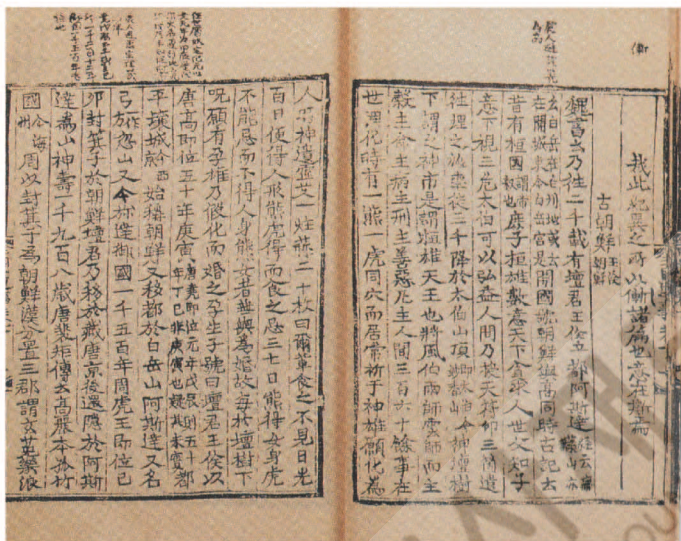 衛
哉此紀異之所以慚諸篇也意在斯焉
古朝鮮王儉朝鮮
魏書云乃往二千載有壇君王儉立都阿斯達經云無葉山亦
云白岳在白州地或云在開城東今白岳宮是開國號朝鮮與高同時古記云
昔有桓國謂帝釋也庶子桓雄數意天下貪求人世父知子
意下視三危太伯可以弘益人間乃授天符印三箇遣
往理之雄率徒三千降於太伯山頂即太伯今妙香山神壇樹
下謂之神市是謂桓雄天王也將風伯雨師雲師而主
穀主命主病主刑主善惡凡主人間三百六十餘事在
世理化時有一熊一虎同穴而居常祈于神雄願化為
人時神遺靈艾一炷蒜二十枚曰爾輩食之不見日光
百日便得人形熊虎得而食之忌三七日熊得女身虎
不能忌而不得人身熊女者無與為婚故每於壇樹下
呪願有孕雄乃假化而婚之孕生子號曰壇君王儉以
唐高即位五十年庚寅唐堯即位元年戊辰則五十年丁巳非庚寅也疑其未實都
平壤城今西京始稱朝鮮又移都於白岳山阿斯達又名
弓一作方忽山又今彌達御國一千五百年周虎王即位己
卯封箕子於朝鮮壇君乃移於藏唐京後還隱於阿斯
達為山神壽一千九百八歲唐裴矩傳云高麗本孤竹
國今海州周以封箕子為朝鮮漢分置三郡謂玄菟樂浪